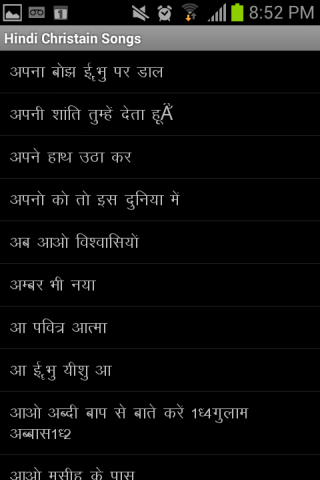 8:52 PM
Hindi Christain Songs
अपना बोझ ईृभु पर डाल
अपनी शांति तुम्हें देता हूÃ
अपने हाथ उठा कर
अपनो को तो इस दुनिया में
अब आओ विश्वासियों
अम्बर भी नया
आ पवित्र आत्मा
आ ईृभु यीशु आ
आओ अब्दी बाप से बाते करें 1ध्4गुलाम
अब्बास1ध्2
आओ मसीह के पास